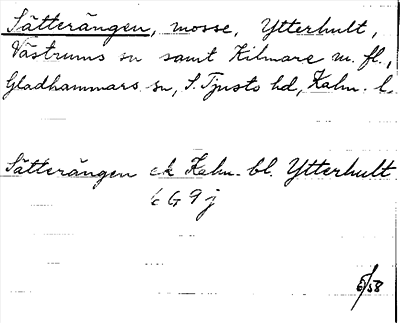 Sätterängen, mosse, Ytterhult,
Västrums sn samt Kilmare m. fl.,
Gladhammars sn, S. Tjusts hd, Kalm. l.
Sätterängen ek Kalm. bl. Ytterhult
6 G 9 j
6/58